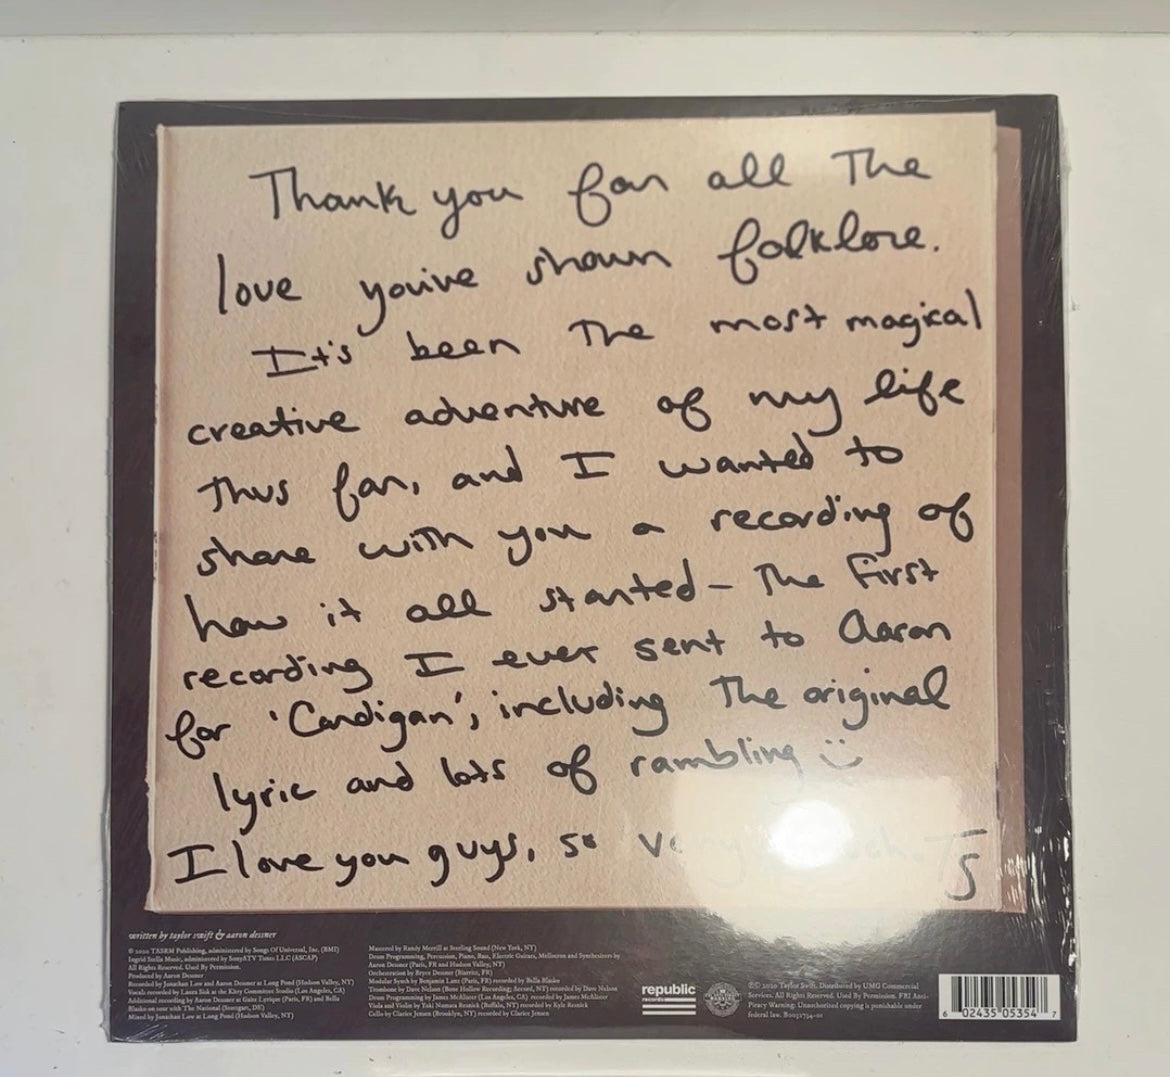 Thank you for all The
love you've shown folklore.
It's been The most magical
creative adventure of my life
Thus far, and I wanted to
share with you a recording of
how it all started – The first
recording I ever sent to Aaron
for 'Cardigan', including The original
lyric and lots of rambling :)
I love you guys, so very TS
written by taylor swift & aaron dessner
© 2020 TASRM Publishing, administered by Songs Of Universal, Inc. (BMI)
Ingrid Stella Music, administered by Sony/ATV Tunes LLC (ASCAP)
All Rights Reserved. Used By Permission.
Produced by Aaron Dessner
Recorded by Jonathan Low and Aaron Dessner at Long Pond (Hudson Valley, NY)
Vocals recorded by Laura Sisk at the Kitty Committee Studio (Los Angeles, CA)
Additional recording by Aaron Dessner at Gaite Lyrique (Paris, FR) and Bella
Blasko on tour with The National (Stuttgart, DE)
Mixed by Jonathan Low at Long Pond (Hudson Valley, NY)
Mastered by Randy Merrill at Sterling Sound (New York, NY)
Drum Programming, Percussion, Piano, Bass, Electric Guitars, Mellotron and Synthesizers by
Aaron Dessner (Paris, FR and Hudson Valley, NY)
Orchestration by Bryce Dessner (Biarritz, FR)
Modular Synth by Benjamin Lanz (Paris, FR) recorded by Bella Blasko
Trombone by Dave Nelson (Bone Hollow Recording; Accord, NY) recorded by Dave Nelson
Drum Programming by James McAlister (Los Angeles, CA) recorded by James McAlister
Viola and Violin by Yuki Numata Resnick (Buffalo, NY) recorded by Kyle Resnick
Cello by Clarice Jensen (Brooklyn, NY) recorded by Clarice Jensen
republic
records
℗© 2020 Taylor Swift. Distributed by UMG Commercial
Services. All Rights Reserved. Used By Permission. FBI Anti-
Piracy Warning: Unauthorized copying is punishable under
federal law. B0032734-01
6 02435 05354 7